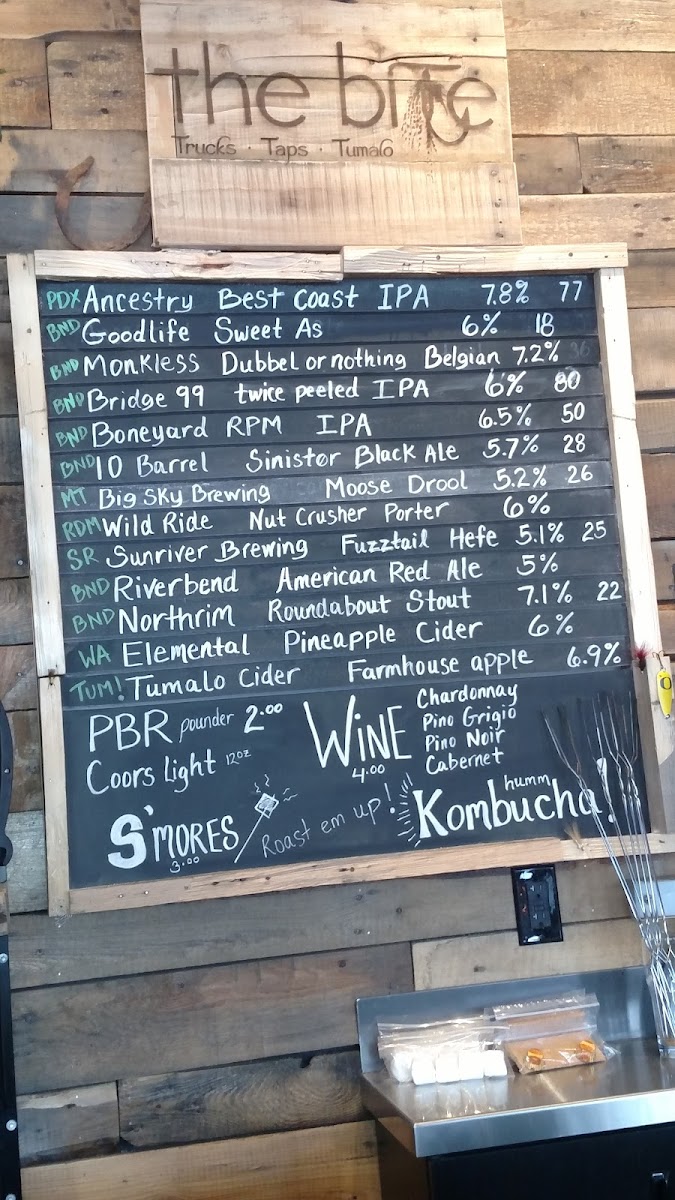 the bite
Trucks · Taps · Tumalo
PDX Ancestry Best Coast IPA 7.8% 77
BND Goodlife Sweet As 6% 18
BND Monkless Dubbel or nothing Belgian 7.2% 36
BND Bridge 99 twice peeled IPA 6% 80
BND Boneyard RPM IPA 6.5% 50
BND 10 Barrel Sinistor Black Ale 5.7% 28
MT Big Sky Brewing Moose Drool 5.2% 26
RDM Wild Ride Nut Crusher Porter 6%
SR Sunriver Brewing Fuzztail Hefe 5.1% 25
BND Riverbend American Red Ale 5%
BND Northrim Roundabout Stout 7.1% 22
WA Elemental Pineapple Cider 6%
TUM! Tumalo Cider Farmhouse apple 6.9%
PBR pounder 2.00
Coors Light 12oz
WiNE 4.00
Chardonnay
Pino Grigio
Pino Noir
Cabernet
S'MORES 3.00
Roast em up!
humm
Kombucha!